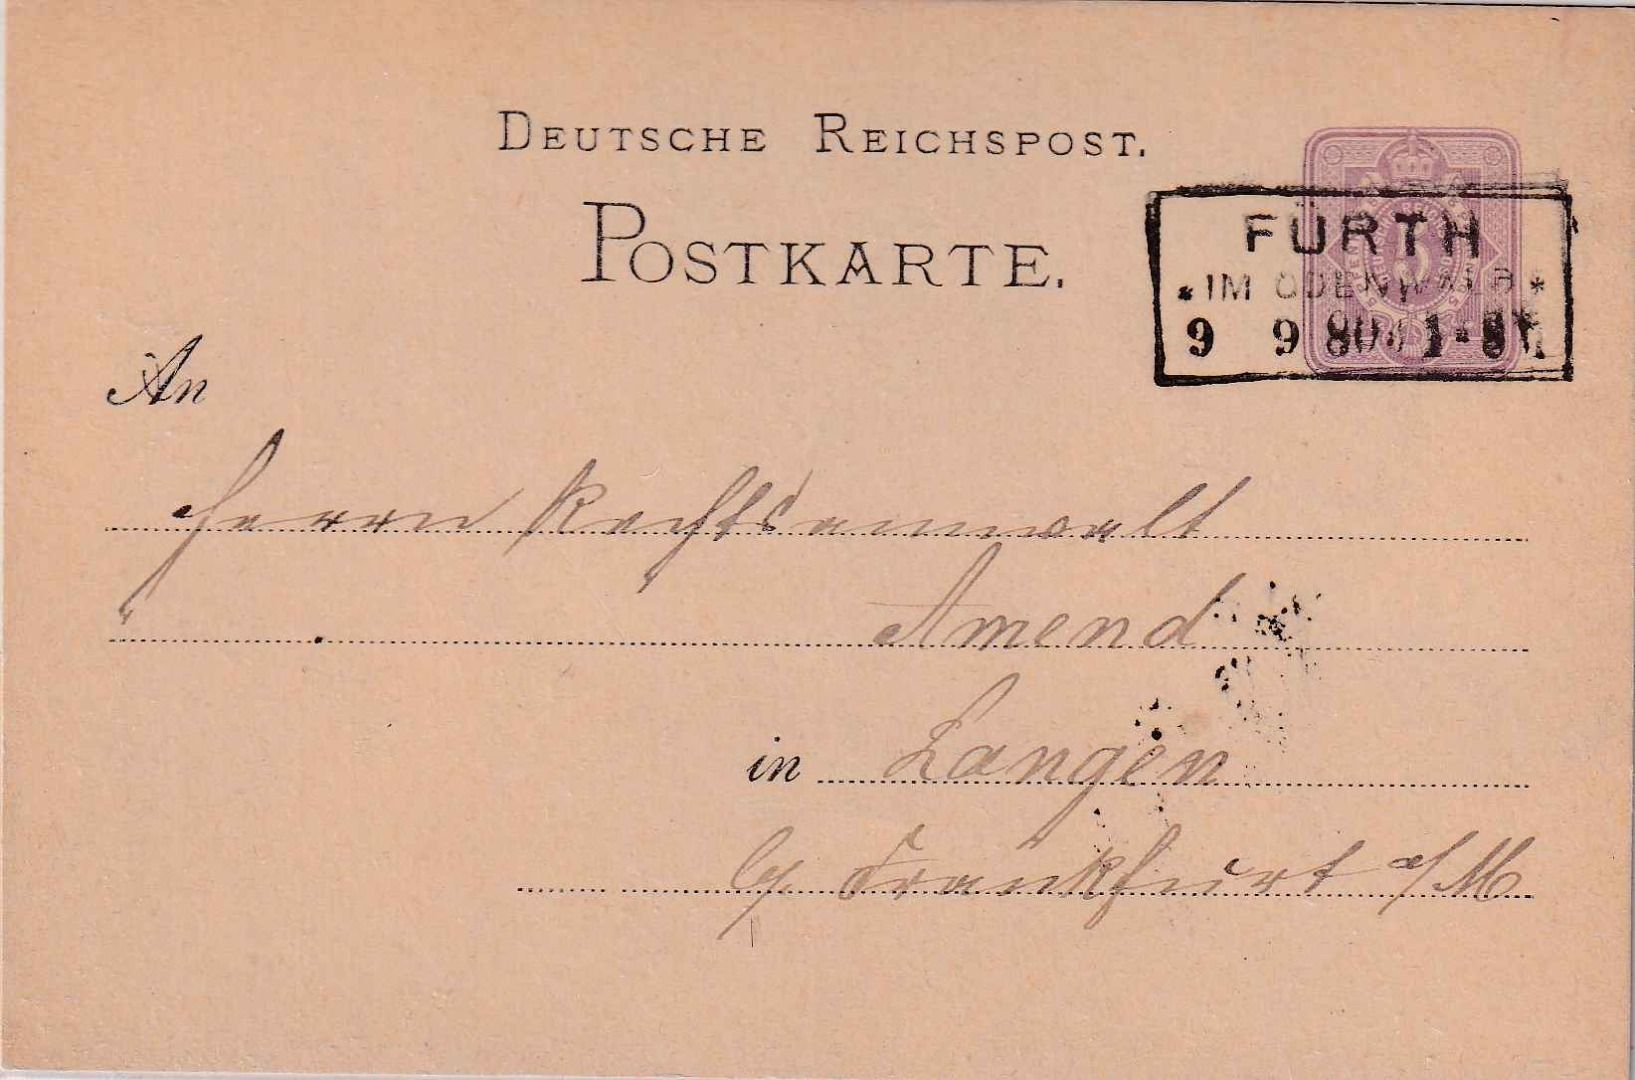 DEUTSCHE REICHSPOST.
POSTKARTE.
FÜRTH
* IM ODENWALD *
9 9 80
An
Herrn Rechtsanwalt
Amend
in Langen
b/ Frankfurt a/M